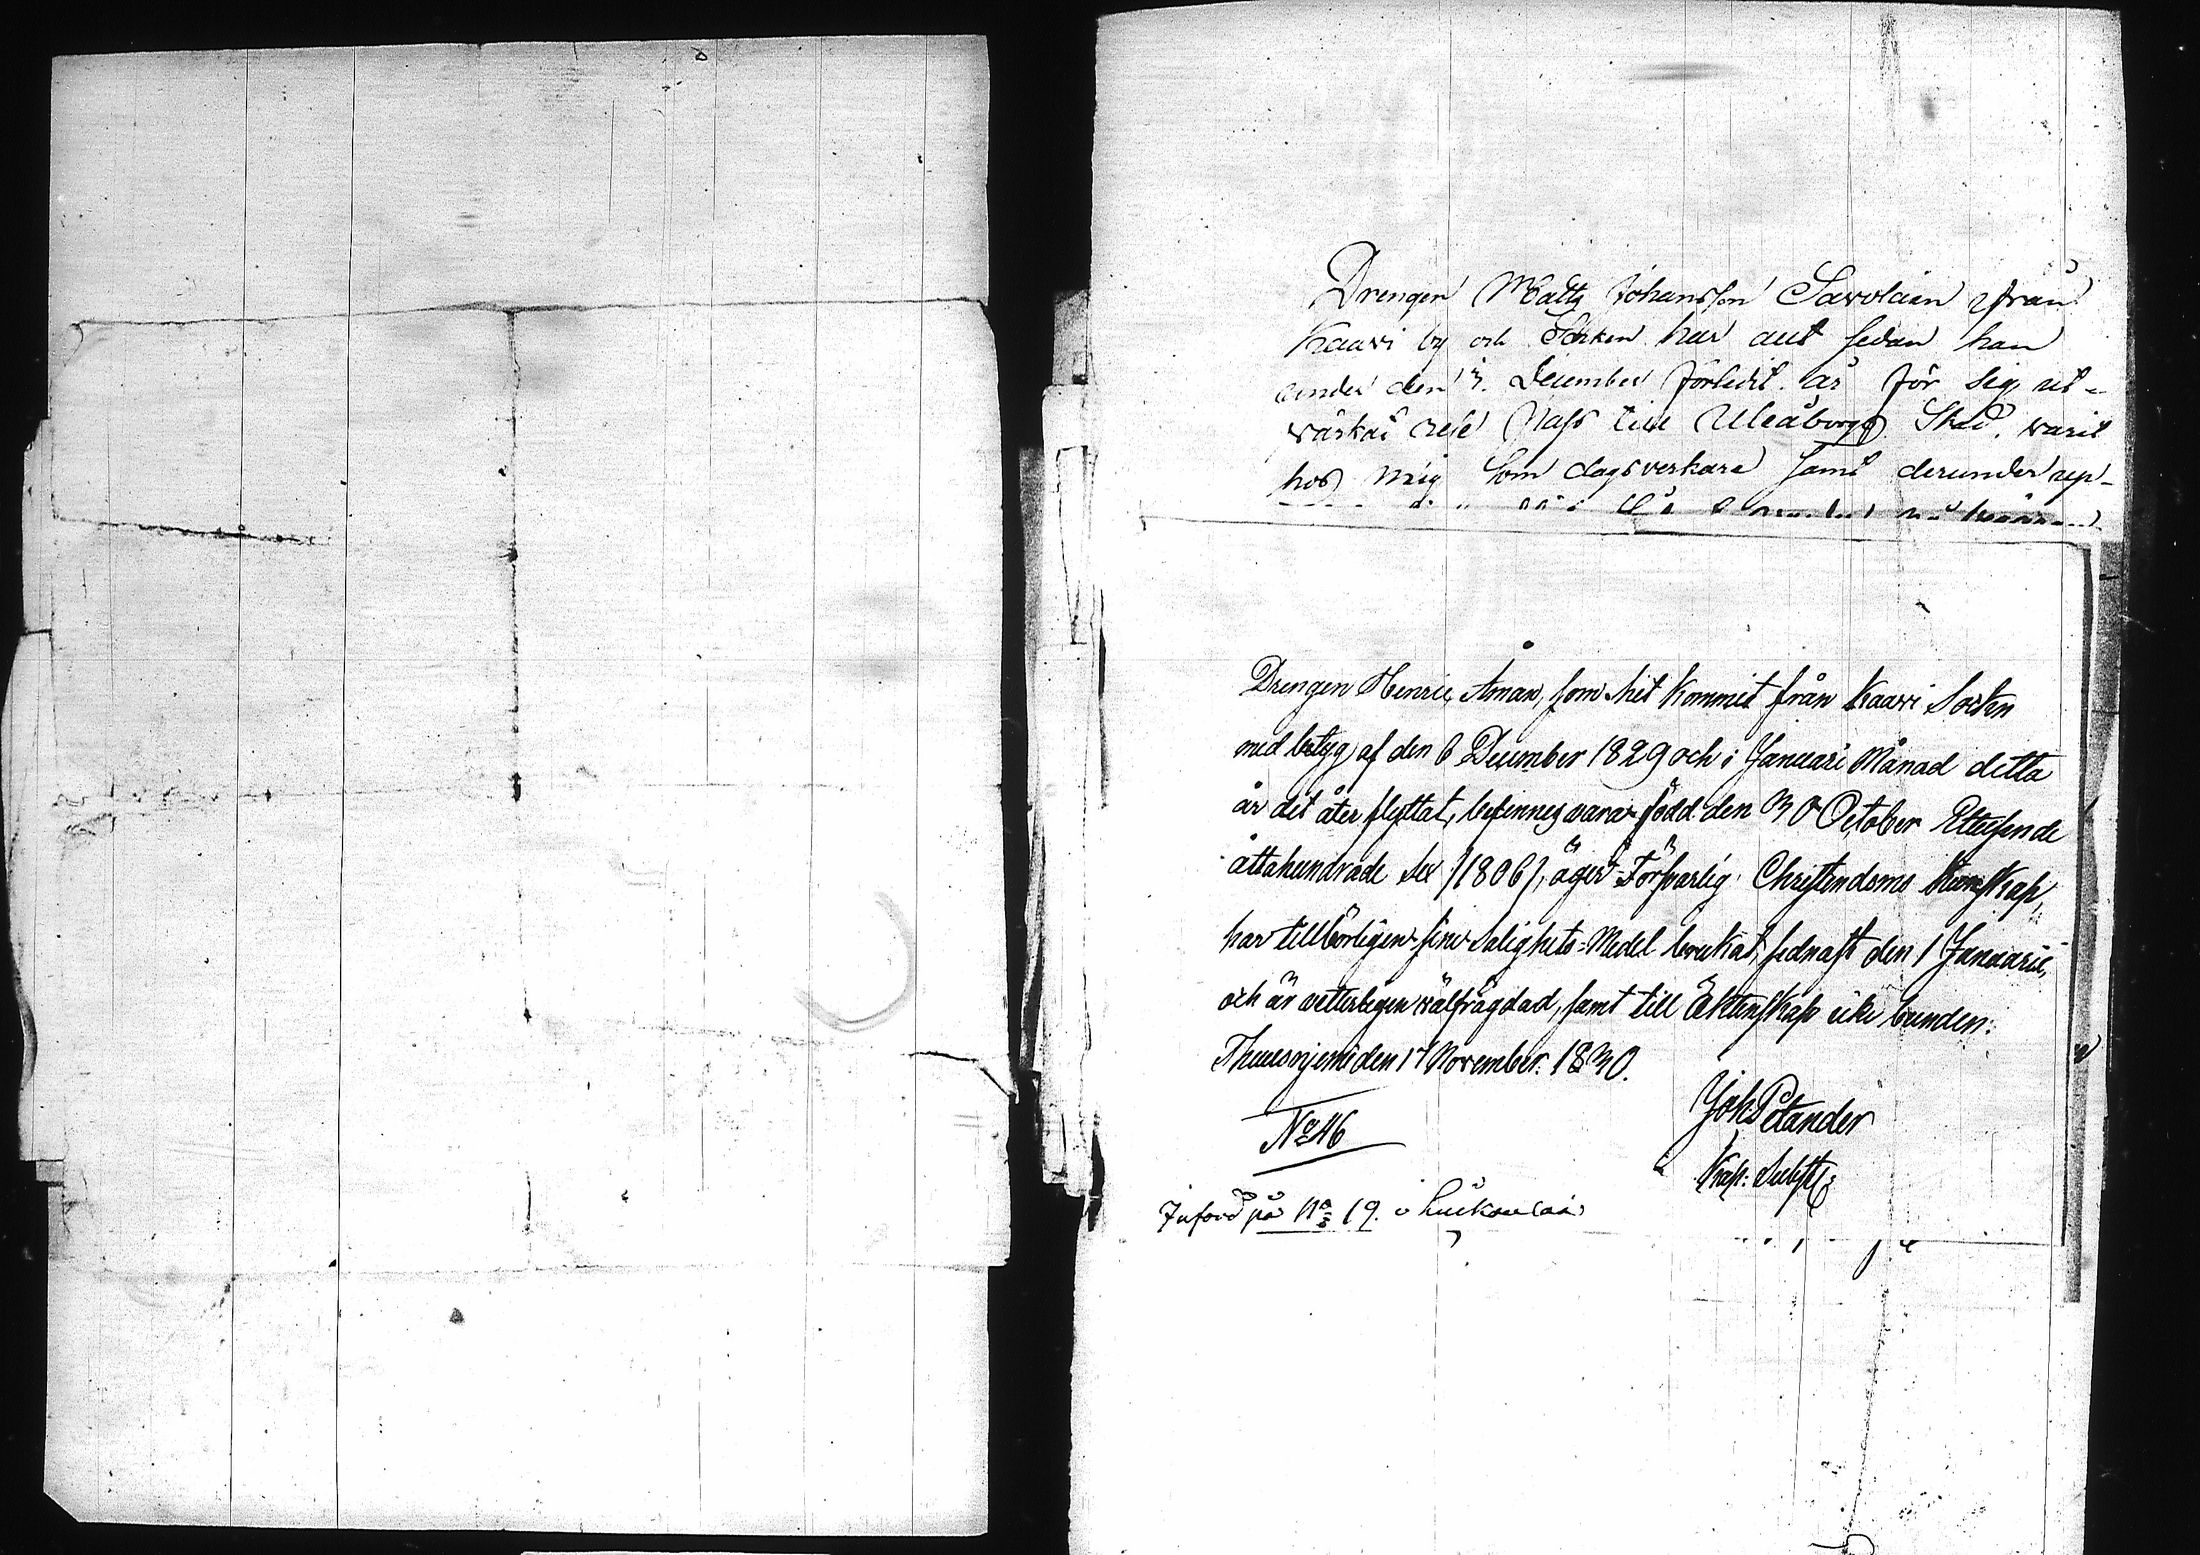 Drengen Matts Johansson Savolain från
Kaavi by och Socken har allt sedan han
under den 3. December förledit. år för sig ut-
värkat rese Pass till Uleåborgs Stad. varit
hos mig som dagsverkare samt derunder upp-
Drengen Henric Åman, som hit kommit från Kaavi Socken
med betyg af den 6 December 1829 och i Januari Månad detta
år dit åter flyttat, befinnes vara född den 30 October Ettusende
åttahundrade sex (1806), äger Försvarlig Christendoms Kunskap,
har tillbörligen sine Salighets-Medel brukat, sednast den 1 Januarii,
och är vetterligen välfrägdad, samt till Ektenskap icke bunden.
Thuusnjemi den 17 November. 1830.
Joh Petander
No 46
Kap: Subst:
Införd på No 19. i